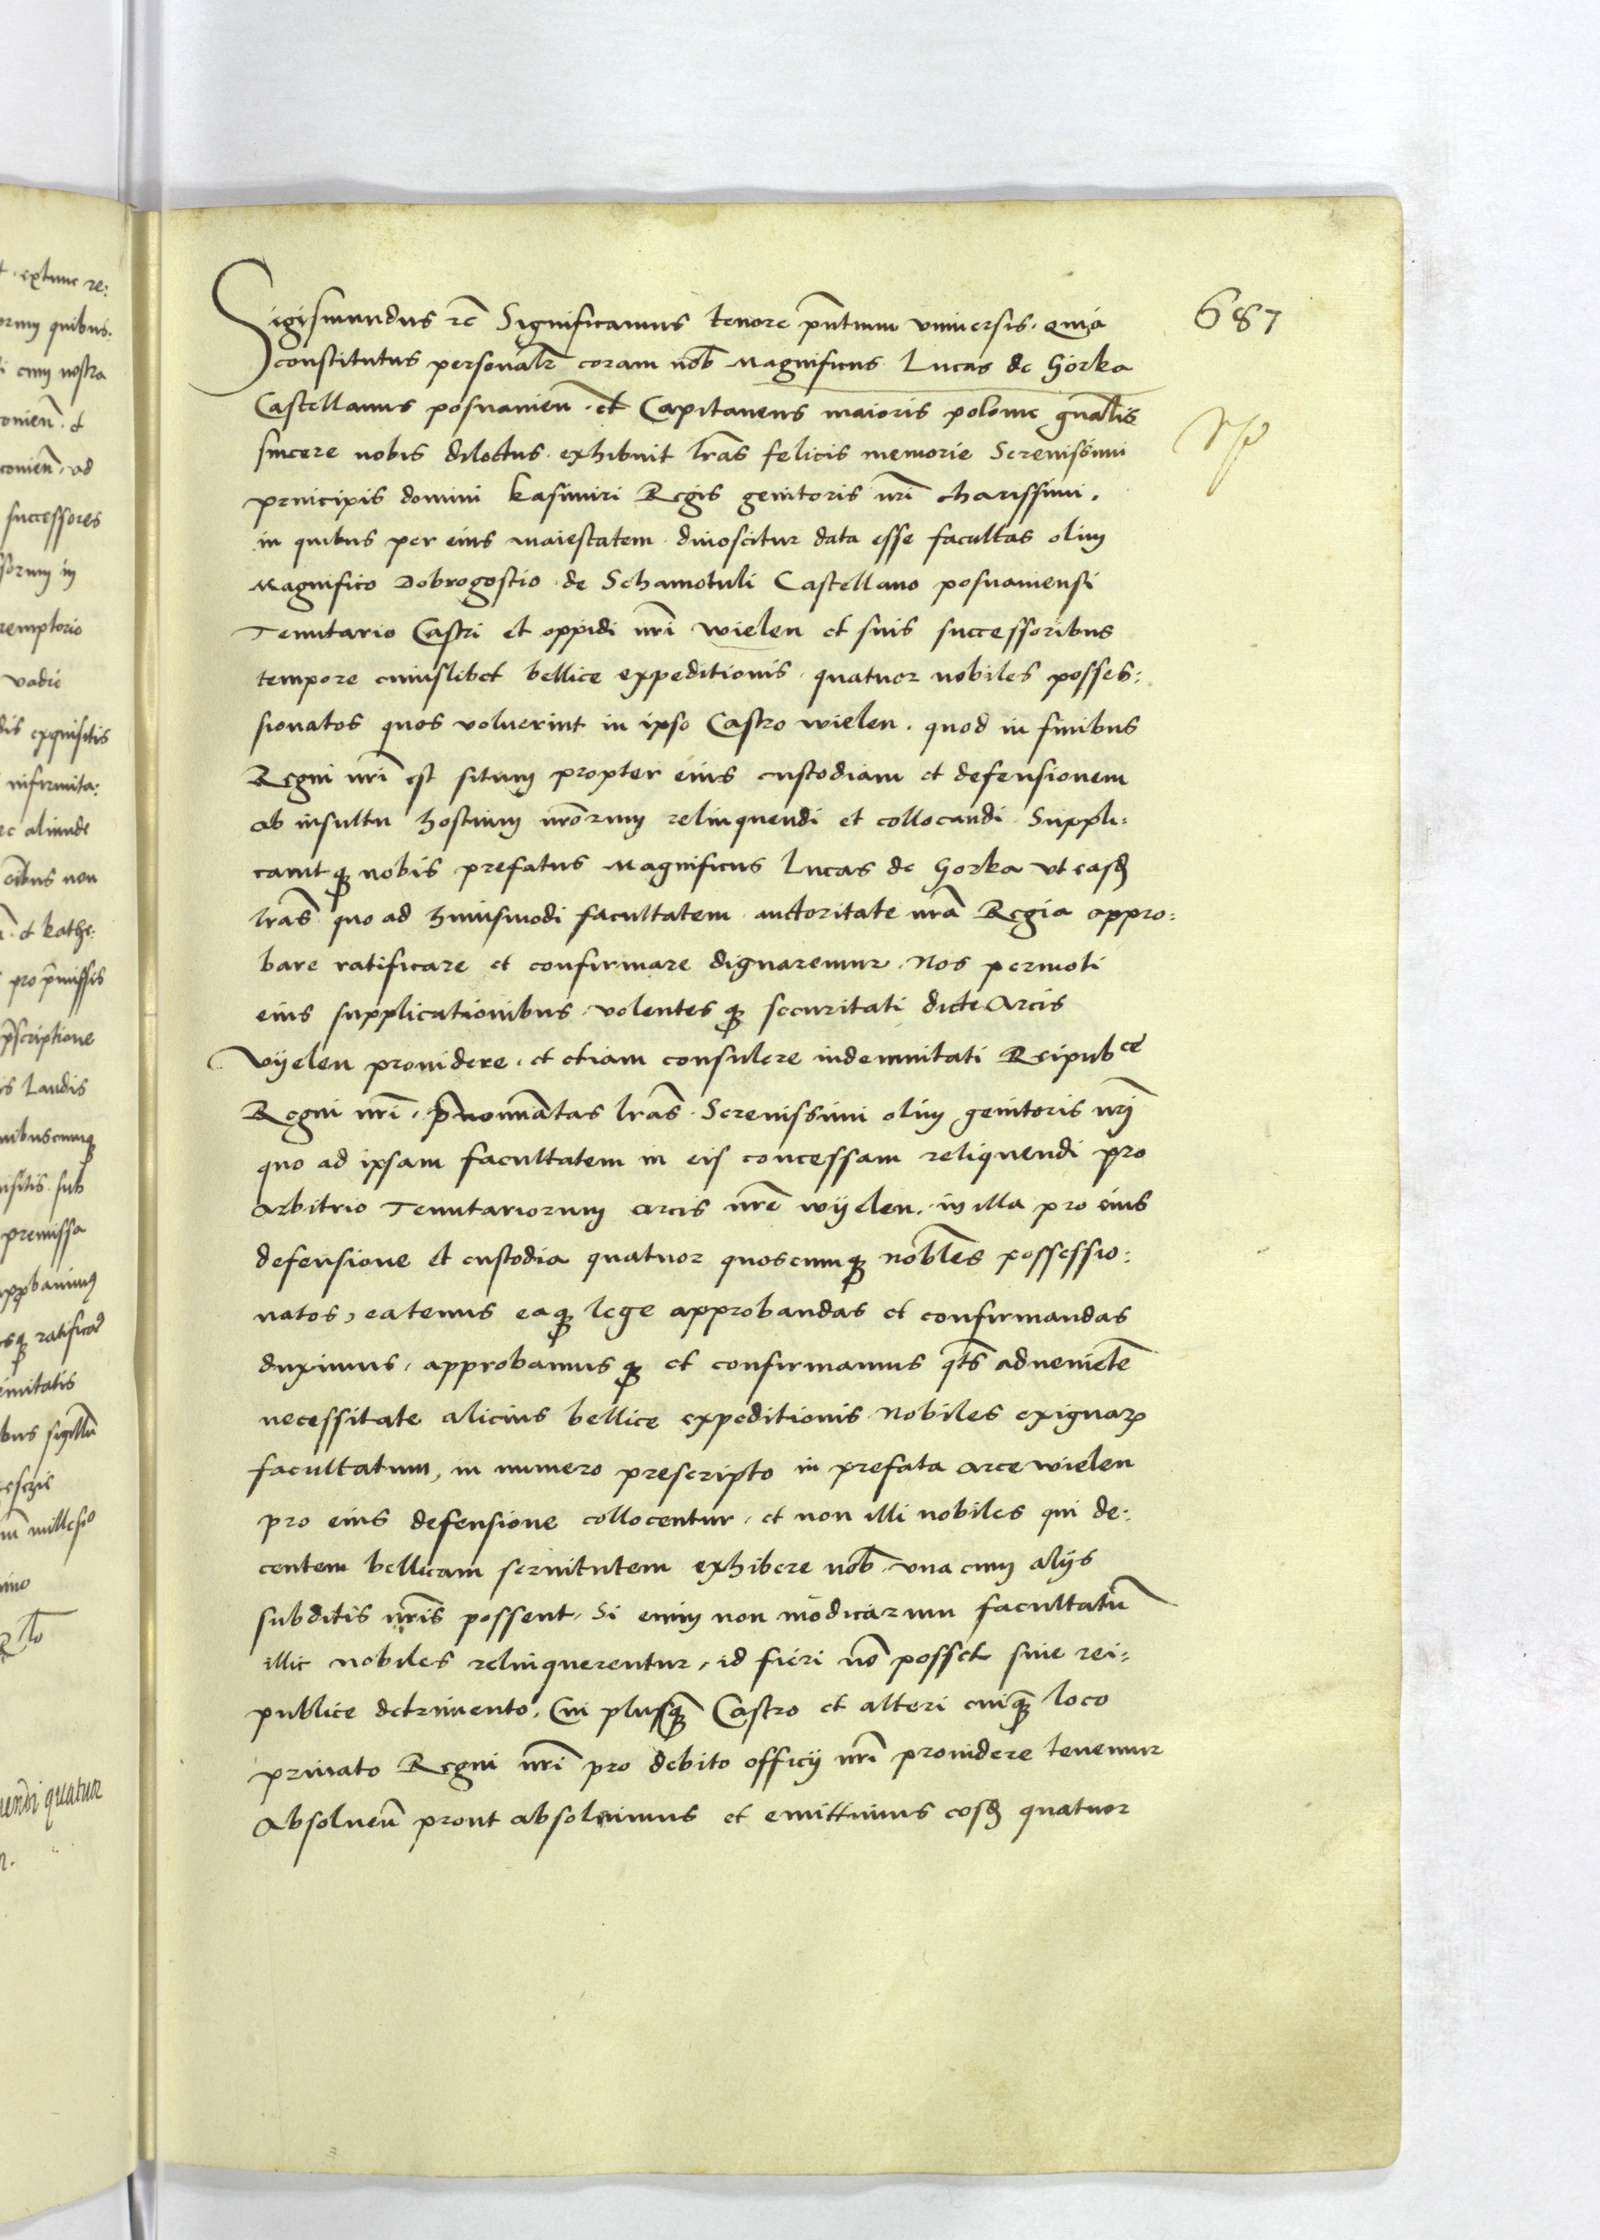 687
Sigismundus rc̄ Significamus tenore pn̄tium vniuersis. quia
constitutus personalr̄ coram nob̄ Magnificus Lucas de Gorka
Castellanus posnanien̄. et Capitaneus maioris polonie gnal̄is
sincere nobis dilectus. exhibuit lr̄as felicis memorie Serenissimi
principis domini Kasimiri Regis genitoris nr̄i charissimi.
in quibus per eius maiestatem dinoscitur data esse facultas olim
Magnifico Dobrogostio de Schamotuli Castellano posnaniensi
Tenutario Castri et oppidi nr̄i wielen et suis successoribus
tempore cuiuslibet bellice expeditionis. quatuor nobiles posses:
sionatos quos voluerint in ipso Castro wielen. quod in finibus
Regni nr̄i est situm propter eius custodiam et defensionem
ab insultu hostium nr̄orum relinquendi et collocandi. Suppli:
cauitqꝫ nobis prefatus Magnificus Lucas de Gorka vt easd̄
lr̄as quo ad huiusmodi facultatem auctoritate nr̄a Regia appro:
bare ratificare et confirmare dignaremur. Nos permoti
eius supplicationibus. volentesqꝫ securitati dicte Arcis
Vyelen prouidere. et etiam consulere indemnitati Reipub^ce
Regni nr̄i. p̄nomīatas lr̄as. Serenissimi olim genitoris nr̄i
quo ad ipsam facultatem in eis concessam reliquendi pro
arbitrio Tenutariorum arcis nr̄e wyelen. in illa pro eius
defensione et custodia quatuor quoscumqꝫ nobl̄es possessio:
natos, eatenus eaqꝫ lege approbandas et confirmandas
duximus, approbamusqꝫ et confirmamus qt̄s adueniēte
necessitate alicuius bellice expeditionis Nobiles exiguarꝝ
facultatum, in numero prescripto in prefata arce wielen
pro eius defensione collocentur, et non illi nobiles qui de:
centem bellicam seruitutem exhibere nob̄ vna cum alijs
subditis nr̄is possent, Si enim non modicarum facultatū
illic nobiles relinquerentur, id fieri nō posset sine rei:
publice detrimento, Cui plusqꝫ Castro et alteri cuiqꝫ loco
priuato Regni nr̄i pro debito officij nr̄i prouidere tenemur
Absoluen̄ prout absoluimus et emittimus eosd̄ quatuor